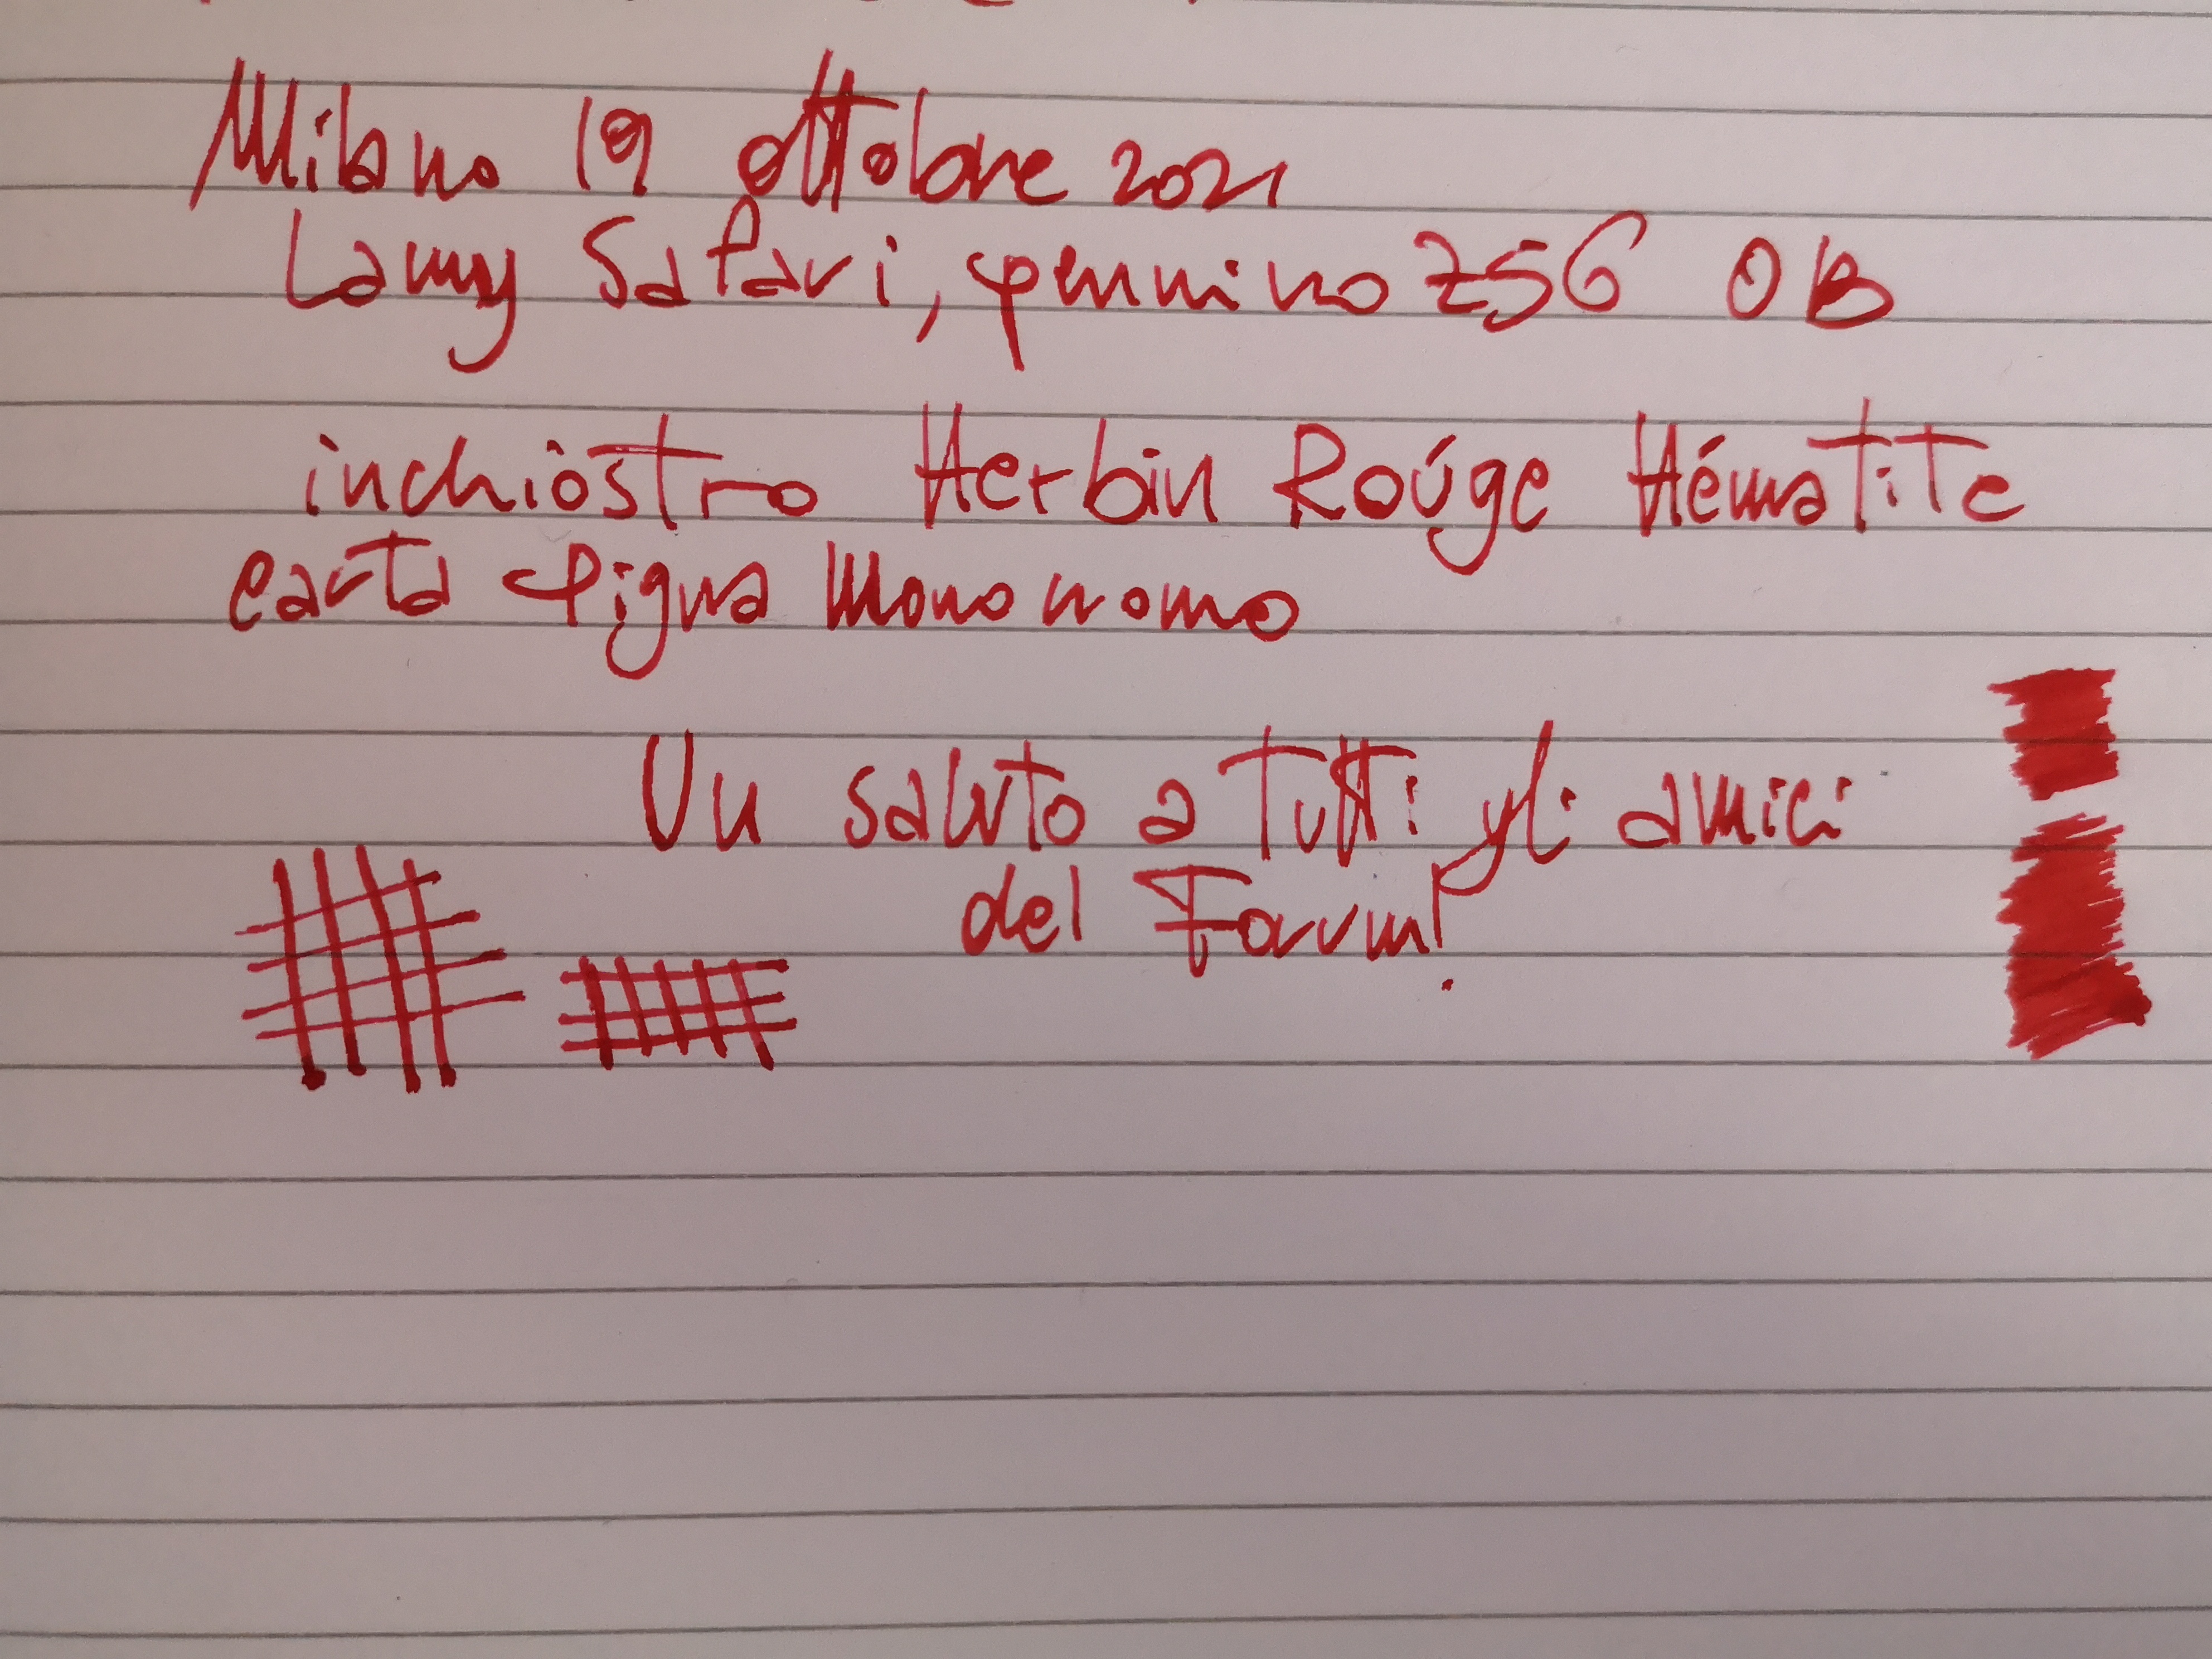 Milano 19 ottobre 2021
Lamy Safari, pennino Z56 OB
inchiostro Herbin Roúge Hématite
carta Pigna Monoromo
Un saluto a tutti gli amici
del Forum!